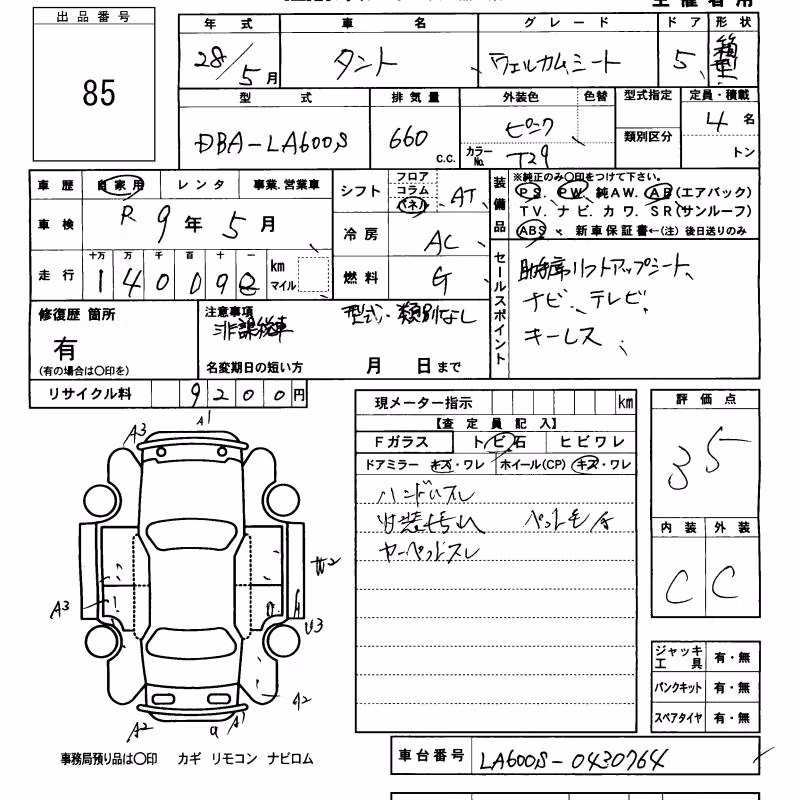 出品番号
85
年式 車名 グレード ドア 形状
28/5月 タント ウェルカムシート 5 箱型
型式 排気量 外装色 色替 型式指定 定員・積載
DBA-LA600S 660 c.c. ピンク 類別区分 4名
カラーNo. T29 トン
車歴 自家用 レンタ 事業.営業車
シフト フロア コラム インネ AT
装備品 ※純正のみ〇印をつけて下さい。
PS. PW. 純AW. AB(エアバック)
TV. ナビ. カワ. SR(サンルーフ)
ABS 新車保証書←(注) 後日送りのみ
車検 R9年5月
冷房 AC
走行 十万 万 千 百 十 一
140098 km マイル
燃料 G
セールスポイント
助手席リフトアップシート、
ナビ、テレビ、
キーレス、
修復歴 箇所
有
(有の場合は〇印を)
注意事項 型式・類別なし
非課税車
名変期日の短い方 月 日まで
リサイクル料 9200円
現メーター指示 km
【査定員記入】
Fガラス トビ石 ヒビワレ
ドアミラー キズ・ワレ ホイール(CP) キズ・ワレ
ハンドルスレ
内装汚れ ペット毛有
カーペットスレ
評価点
35
内装 外装
C C
A3 A1
W2
A3 U3
A2
A2 A1
ジャッキ工具 有・無
パンクキット 有・無
スペアタイヤ 有・無
事務局預り品は〇印 カギ リモコン ナビロム
車台番号 LA600S-0430764